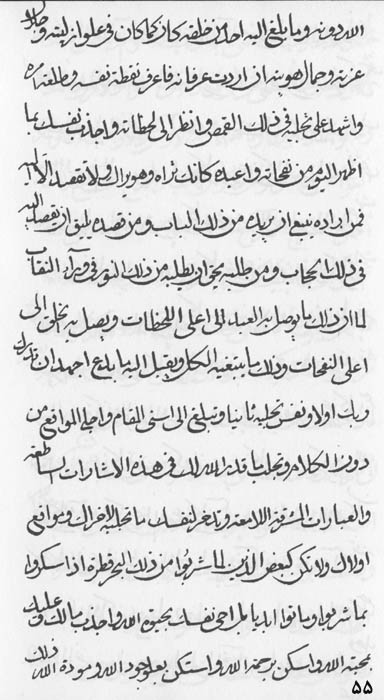 الله دونه وما بلغ اليه احد من خلقه كان كما كان في علو ازليته و جلال
عزته وجمال هويته ان اردت عرفانه فاعرف نقطة نفسه وطلعة امره
واشهد على تجليه في ذلك القمص وانظر الى لحظاته واجذب نفسك بما
اظهر اليوم من نفحاته واعبده كانك تراه وهو يراك ولا تقصد الا اليه
فمن اراده ينبغي ان يريده من ذلك الباب ومن قصده يليق ان يقصد اليه
في ذلك الحجاب ومن طلبه يحق ان يطلبه من ذلك النور في وراء النقاب
لما ان ذلك ما يوصل به العباد الى اعلى اللحظات ويصل به الخلق الى
اعلى النفحات وذلك ما يبتغيه الكل ويقبل اليه ابلغ اجهد ان تدرك
ربك اولا ونفس تجليه ثانيا وتبلغ الى اسنى المقام واحلى المواقع من
دون الكلام وتجلب ما قدر الله لك في هذه الاشارات الساطعة
والعبارات المشرقة اللامعة وتاخذ لنفسك ما تحب لاخراك ومواقع
اولاك ولا تكن كبعض الذين لما شربوا من ذلك البحر قطرة اذا سكروا
بما شربوا وماتوا ابدا بل احي نفسك بحيوة الله واجذب مالك وعليك
بمحبة الله واسكن برحمة الله واستكن بعلو جود الله ومودة الله ذلك
۵۵